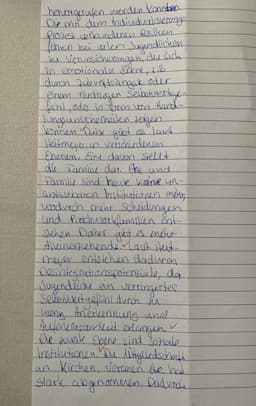 hervorgerufen werden könnten.
Die mit dem Individualisierungs-
prozess verbundenen Risiken
führen bei vielen Jugendlichen
zu Verunsicherungen, die sich
in emotionaler Ebene, z.B.
durch Zukunftsangst oder
einem niedrigen Selbstwertge-
fühl, oder in Form von Hand-
lungsunsicherheiten zeigen
können. Diese gibt es laut
Heitmeyer in verschiedenen
Ebenen. Eine davon stellt
die Familie dar. Ehe und
Familie sind heute keine un-
antastbaren Institutionen mehr,
wodurch mehr Scheidungen
und Patchworkfamilien ent-
stehen. Daher gibt es mehr
Alleinerziehende. Laut Heit-
meyer entstehen dadurch
Desintegrationspotenziale, da
Jugendliche ein verringertes
Selbstwertgefühl durch zu
wenig Anerkennung und
Aufmerksamkeit erlangen.
Die zweite Ebene sind soziale
Institutionen. Die Mitgliedschaft
an Kirchen, Vereinen etc. hat
stark abgenommen. Dadurch